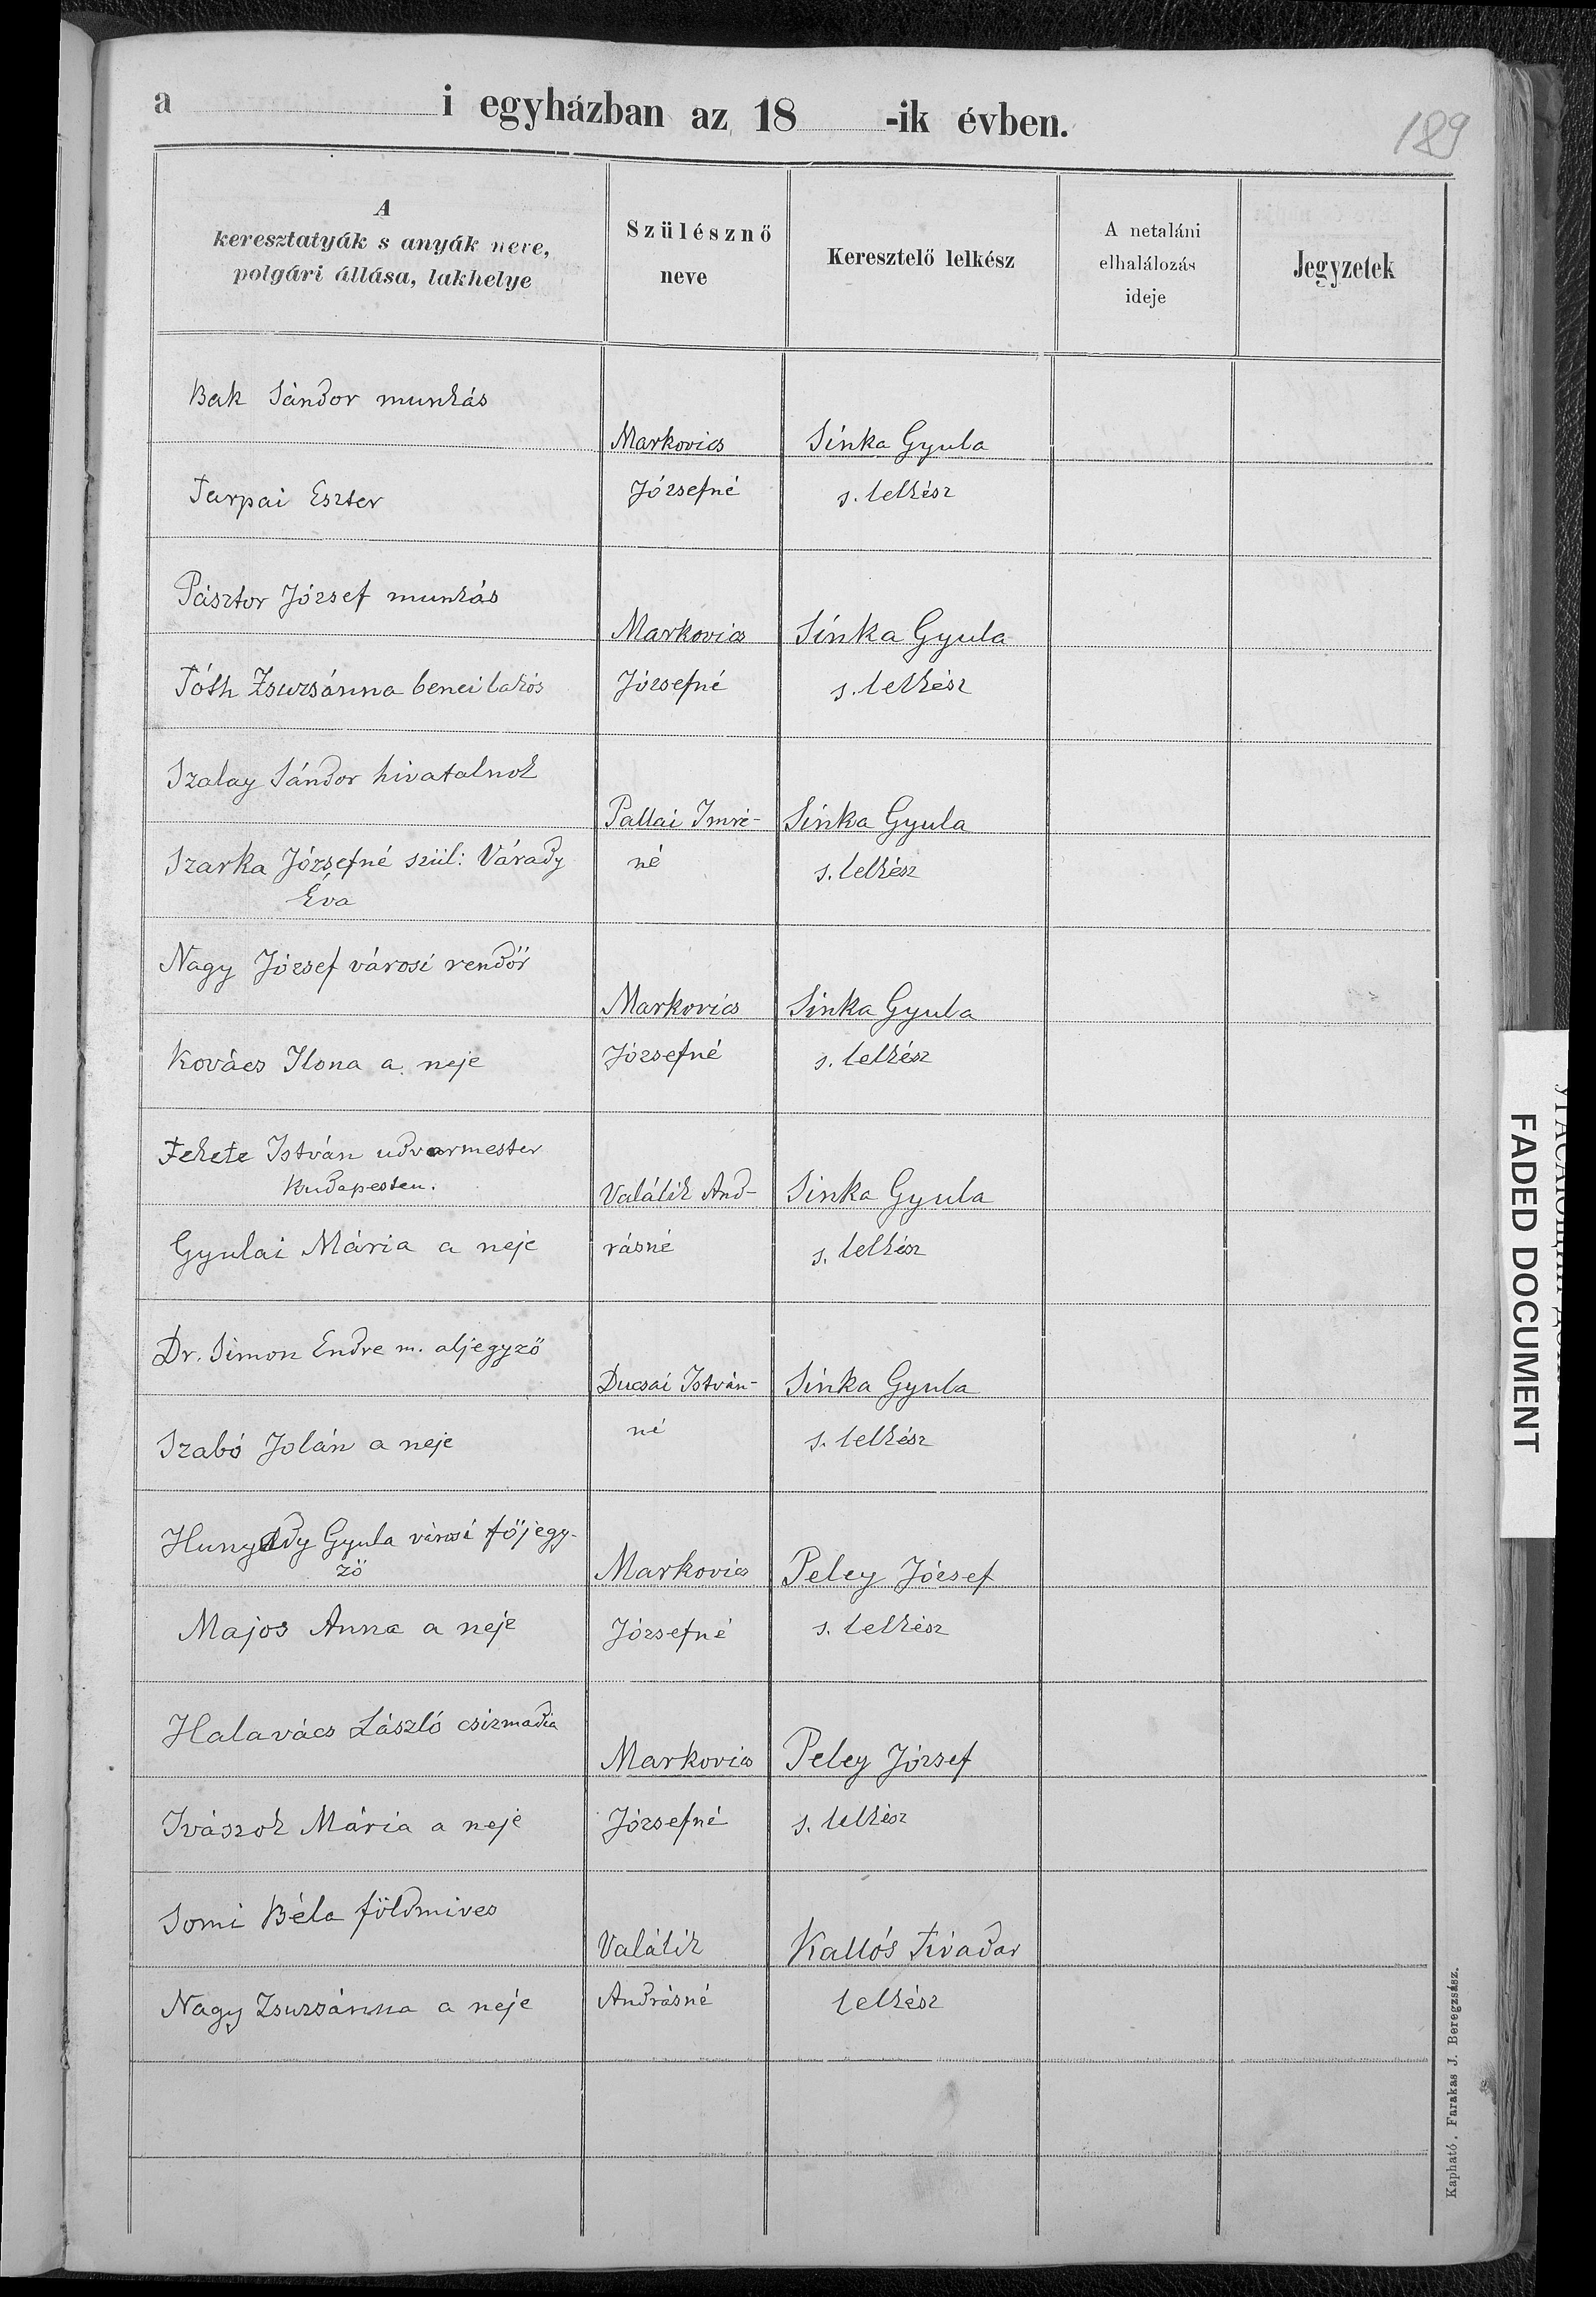 a i egyházban az 18 -ik évben.
189
A
keresztatyák s anyák neve,
polgári állása, lakhelye
Szülésznő
neve
Keresztelő lelkész
A netaláni
elhalálozás
ideje
Jegyzetek
Bak Sándor munkás
Markovics Sinka Gyula
Tarpai Eszter Józsefné s. lelkész
Pásztor József munkás
Markovics Sinka Gyula
Tóth Zsuzsánna benei lakós Józsefné s. lelkész
Szalay Sándor hivatalnok
Pallai Imré- Sinka Gyula
Szarka Józsefné szül: Várady né s. lelkész
Éva
Nagy József városi rendőr
Markovics Sinka Gyula
Kovács Ilona a neje Józsefné s. lelkész
Fekete István udvarmester
Budapesten. Valálik And- Sinka Gyula
Gyulai Mária a neje rásné s. lelkész
Dr. Simon Endre m. aljegyző
Ducsai István- Sinka Gyula
Szabó Jolán a neje né s. lelkész
Hunyady Gyula városi főjegy-
ző Markovics Peley József
Majos Anna a neje Józsefné s. lelkész
Halavács László csizmadia
Markovics Peley József
Ivászok Mária a neje Józsefné s. lelkész
Somi Béla földmives
Valálik Kallós Tivadar
Nagy Zsuzsánna a neje Andrásné lelkész
Kapható. Farakas J. Beregzsász.
FADED DOCUMENT